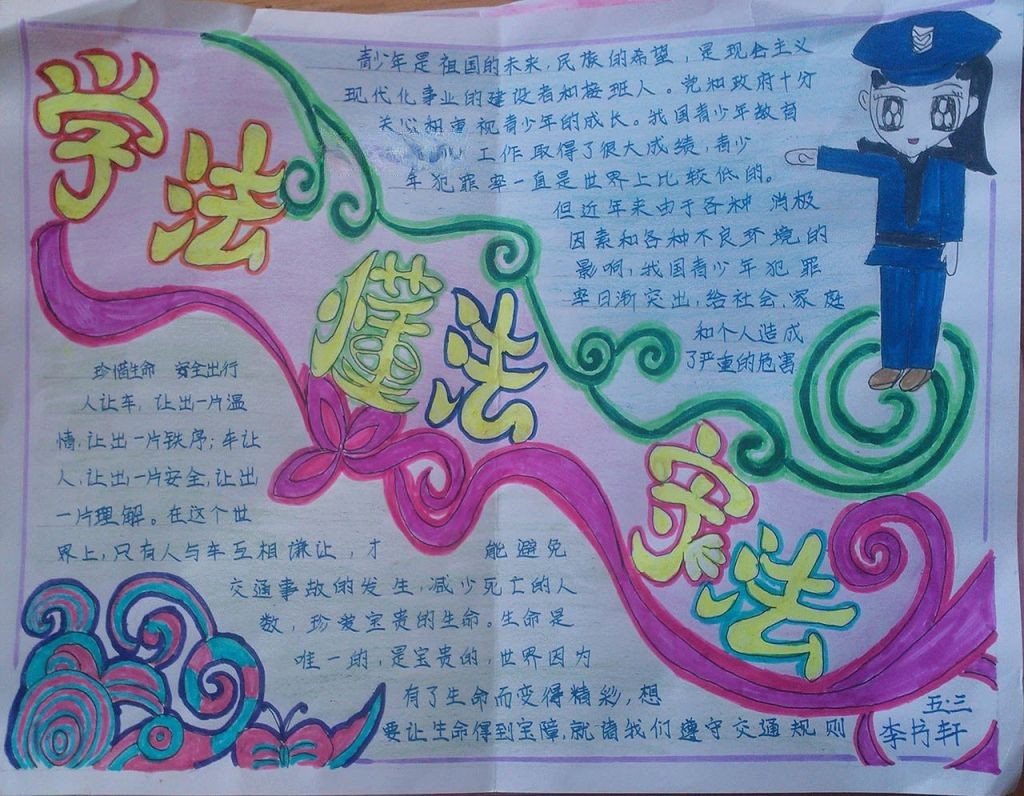 学法
懂法
守法
青少年是祖国的未来,民族的希望,是现会主义
现代化事业的建设者和接班人。党和政府十分
关心和重视青少年的成长。我国青少年教育
工作取得了很大成绩,青少
年犯罪率一直是世界上比较低的。
但近年来由于各种消极
因素和各种不良环境的
影响,我国青少年犯罪
率日渐突出,给社会、家庭
和个人造成
了严重的危害
珍惜生命 安全出行
人让车,让出一片温
情;让出一片秩序;车让
人,让出一片安全,让出
一片理解。在这个世
界上,只有人与车互相谦让,才能避免
交通事故的发生,减少死亡的人
数,珍爱宝贵的生命。生命是
唯一的,是宝贵的,世界因为
有了生命而变得精彩,想
要让生命得到宝障,就请我们遵守交通规则
五.三
李书轩